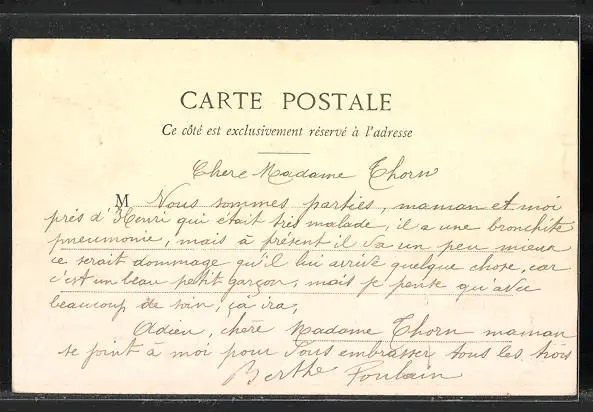 CARTE POSTALE
Ce côté est exclusivement réservé à l'adresse
Chere Madame Thorn
M Nous sommes parties, maman et moi
près d'Henri qui était très malade, il a une bronchite
pneumonie, mais à présent il va un peu mieux
ce serait dommage qu'il lui arrive quelque chose, car
c'est un beau petit garçon, mais je pense qu'avec
beaucoup de soin, ça ira,
Adieu, chère Madame Thorn maman
se joint à moi pour vous embrasser tous les trois
Berthe Poulain